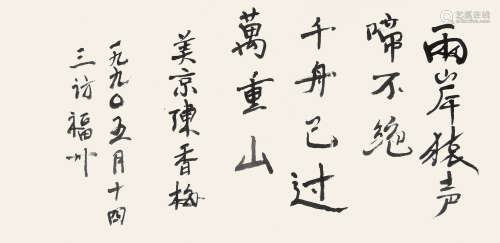 兩岸猿声
啼不絕
千舟已过
萬重山
美京陳香梅
一九九〇五月十四
三访福州